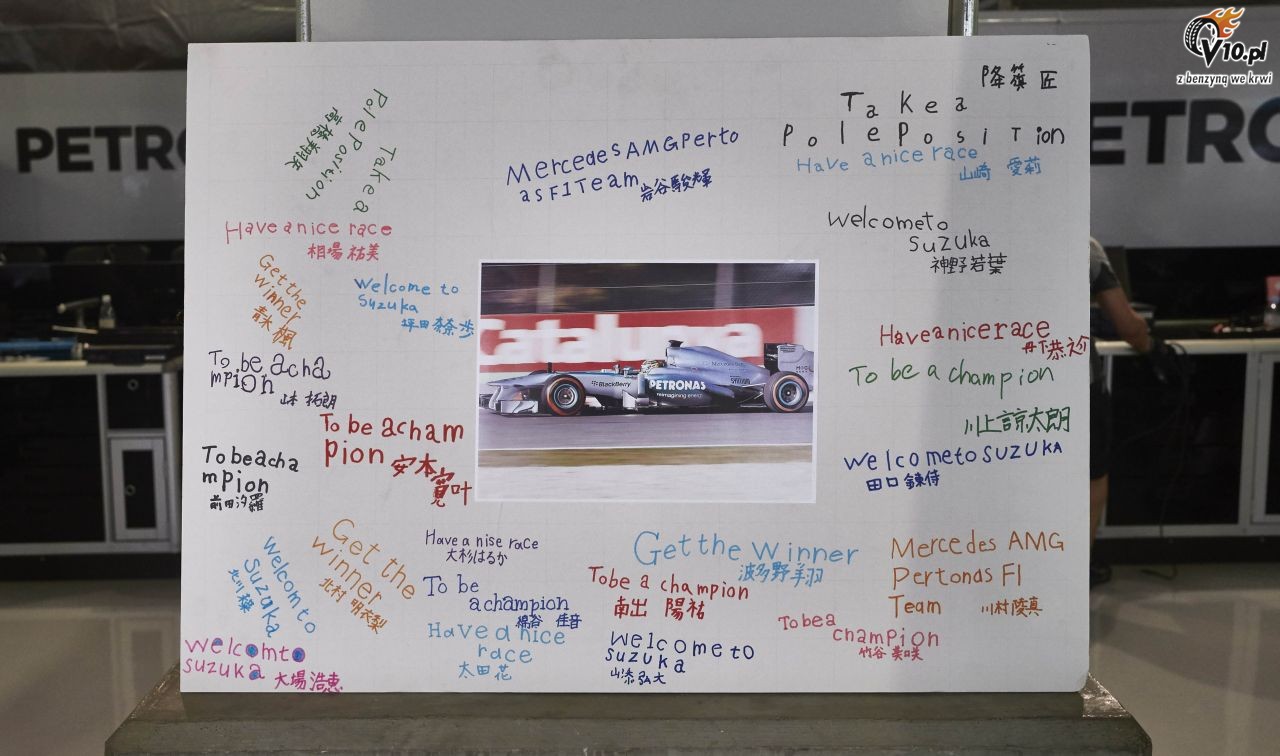 V10.pl
z benzyną we krwi
PETRO
ETRO
Take a
Pole Position
降籏 匠
Take a
Pole Position
Have a nice race
山崎 愛莉
Mercedes AMG Perto
as F1 Team
岩谷駿輝
Have a nice race
相場 祐美
Welcome to
Suzuka
神野若葉
Get the
winner
青木 楓
Welcome to
Suzuka
坪田 奈歩
Cataluma
BlackBerry
PETRONAS
reimagining energy
Have a nice race
To be a champion
川上諒太朗
To be a cha
mpion
拓朗
To be a cham
pion
安本
To be a cha
mpion
前田汐羅
Welcome to SUZUKA
田口
Welcom to
Suzuka
Get the
winner
北村 明衣梨
Have a nise race
大杉はるか
To be
a champion
佳音
Have a nice
race
太田 花
Get the winner
波多野 羽
To be a champion
南出 陽祐
Welcome to
Suzuka
弘大
Mercedes AMG
Pertonas F1
Team
川村 陵真
To be a
champion
竹谷 美咲
Welcomto
suzuka
大場 浩恵